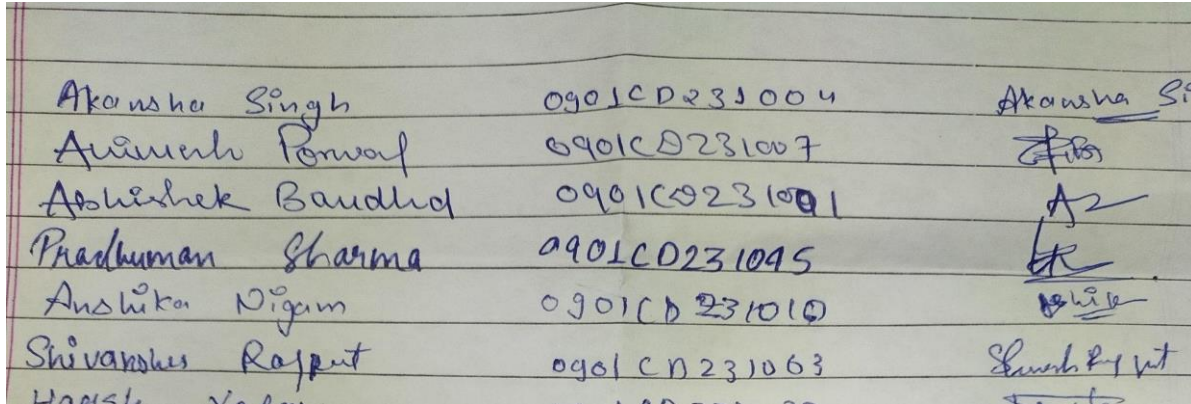 Akansha Singh 0901CD231004 Akansha Si
Animesh Porwal 0901CD231007
Abhishek Bandhd 0901CD231001 A2
Pradhuman Sharma 0901CD231045
Anshika Nigam 0901CD231010
Shivanshu Rajput 0901CD231063